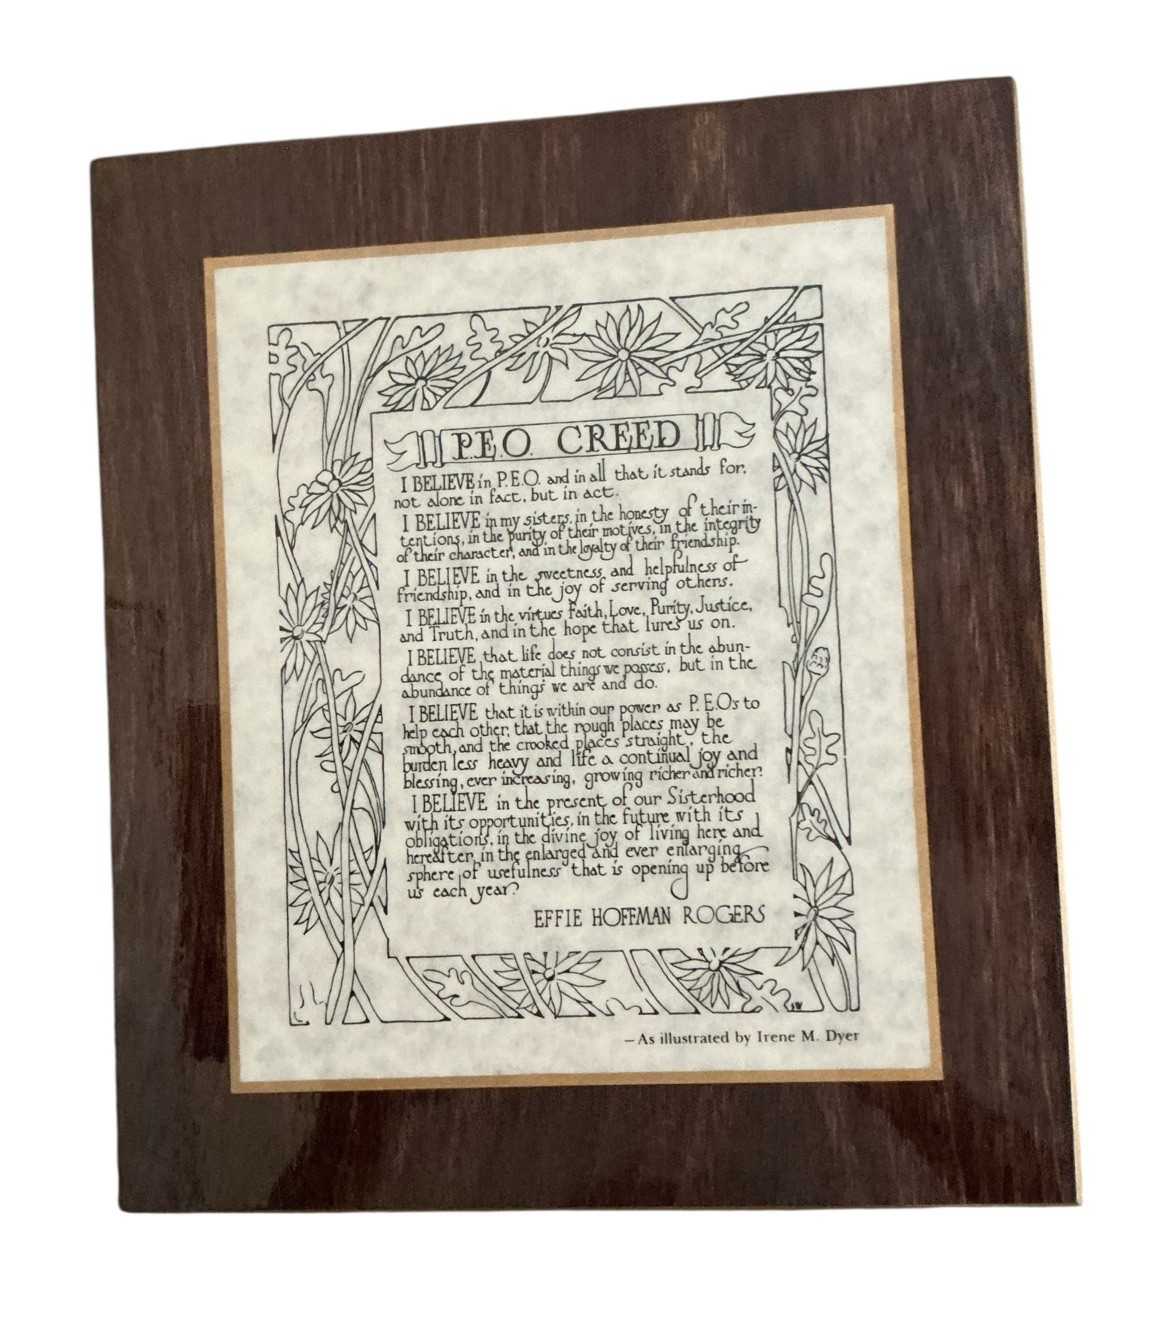 P.E.O. CREED
I BELIEVE in P.E.O. and in all that it stands for,
not alone in fact, but in act.
I BELIEVE in my sisters, in the honesty of their in-
tentions, in the purity of their motives, in the integrity
of their character, and in the loyalty of their friendship.
I BELIEVE in the sweetness and helpfulness of
friendship, and in the joy of serving others.
I BELIEVE in the virtues Faith, Love, Purity, Justice,
and Truth, and in the hope that lures us on.
I BELIEVE that life does not consist in the abun-
dance of the material things we possess, but in the
abundance of things we are and do.
I BELIEVE that it is within our power as P.E.Os to
help each other, that the rough places may be
smooth, and the crooked places straight, the
burden less heavy and life a continual joy and
blessing, ever increasing, growing richer and richer.
I BELIEVE in the present of our Sisterhood
with its opportunities, in the future with its
obligations, in the divine joy of living here and
hereafter, in the enlarged and ever enlarging
sphere of usefulness that is opening up before
us each year.
EFFIE HOFFMAN ROGERS
—As illustrated by Irene M. Dyer